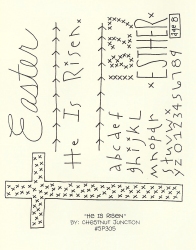 Easter
He Is Risen
1983
ESTHER
age 8
abcdef
ghijkl
mnopqr
stuvwx
yz0123456789
"He Is Risen"
BY: CHESTNUT JUNCTION
#SP305